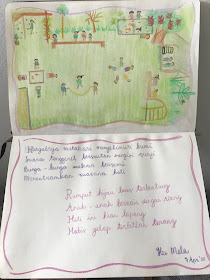 Hangatnya mentari menyelimuti bumi
Suara tonggeret bersautan mengiri pagi
Bunga - bunga mekar berseri
Menentramkan suasana hati
Rumput hijau luas terbentang
Anak - anak bermain dengan riang
Hati ini kian lapang
Habis gelap terbitlah terang